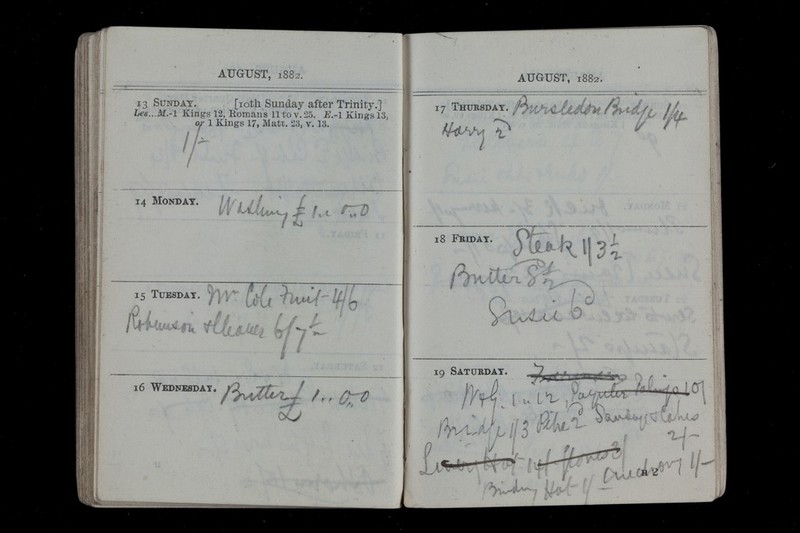 AUGUST, 1882.
13 SUNDAY. [10th Sunday after Trinity.]
Les...M.-1 Kings 12, Romans 11 to v. 25. E.-1 Kings 13,
or 1 Kings 17, Matt. 23, v. 13.
1/-
14 MONDAY. Washing £ 1..0..0
15 TUESDAY. Mr Cole Fruit 4/6
Robinson & Cleaver 6/7½
16 WEDNESDAY. Butter £ 1..0..0
AUGUST, 1882.
17 THURSDAY. Bursledon Bridge 1/4
Harry 2d
18 FRIDAY. Steak 1/3½
Butter 8½
Susie 6d
19 SATURDAY.
1..12, Paynter Palings 10/
Bridge 1/3 2d Sausages & Cakes
2/-
Hat gloves 2/
Binding Hat 1/- 1/-